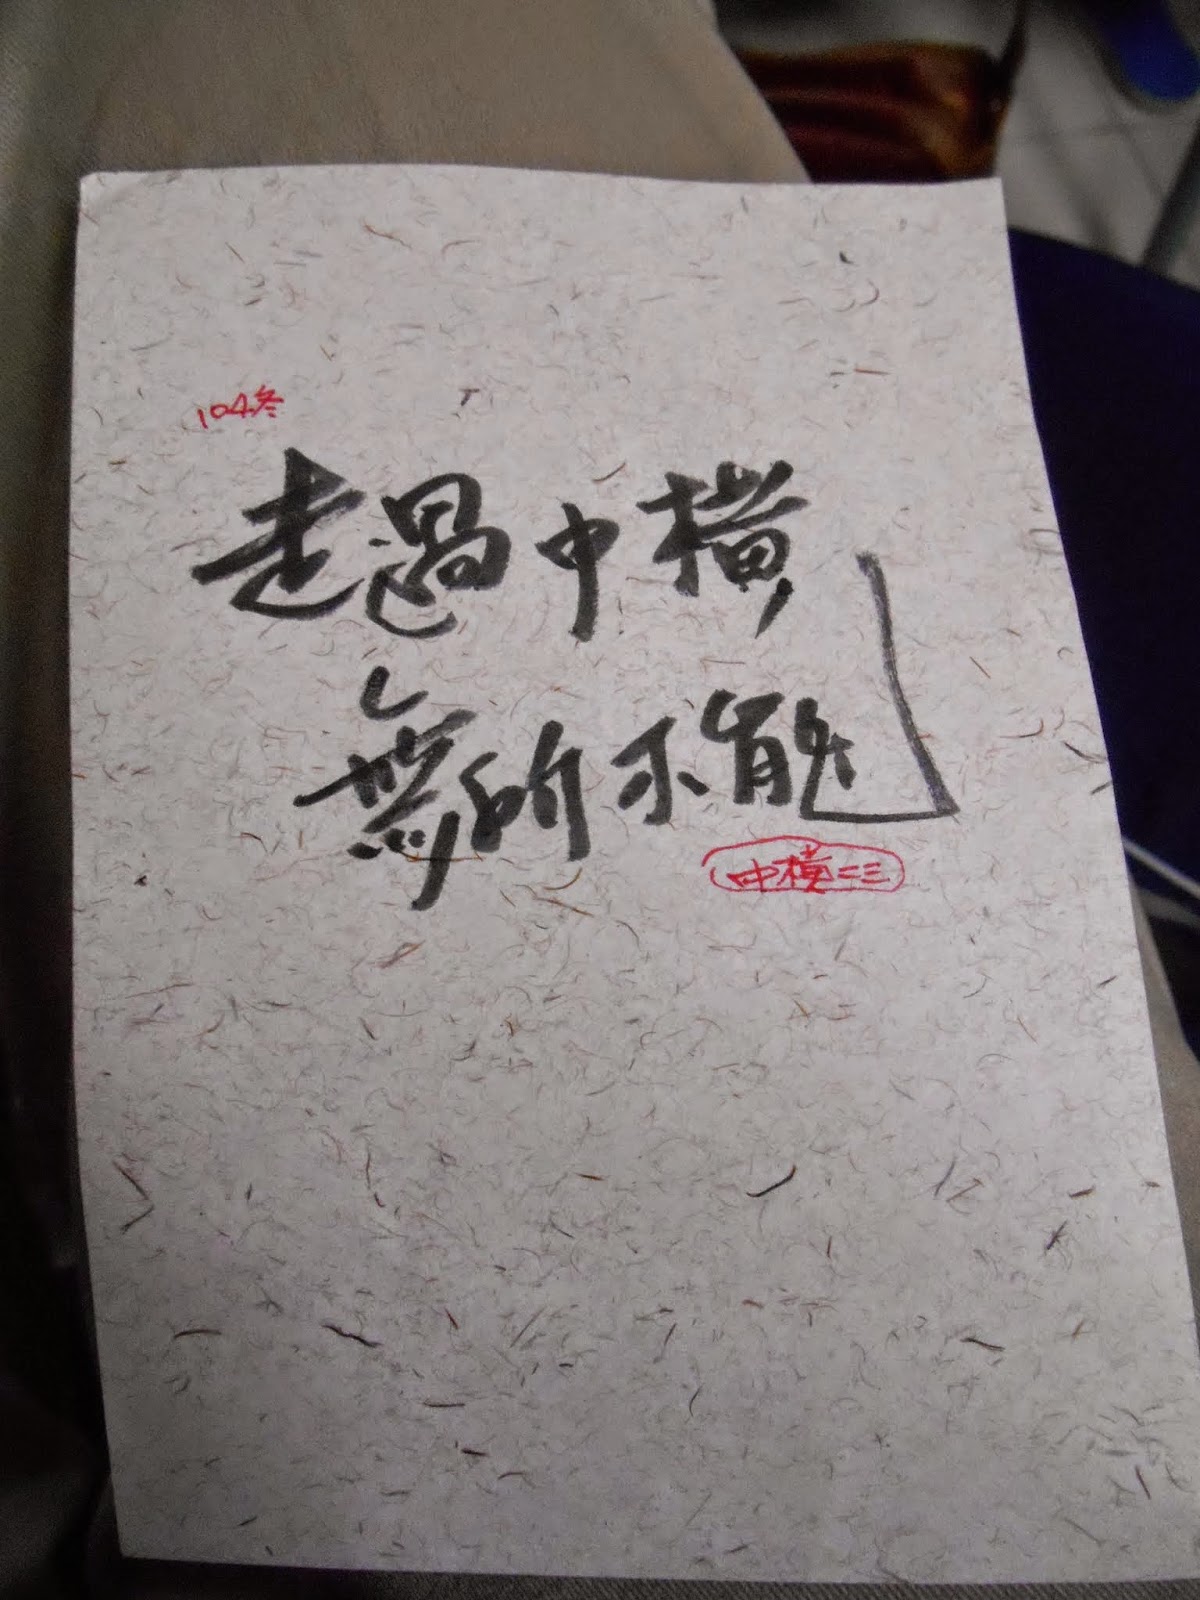 104冬
走過中橫
無所不能
中橫二三